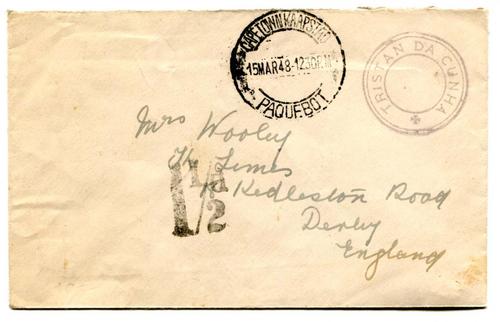 CAPE TOWN KAAPSTAD
15MAR48-1230PM
PAQUEBOT
TRISTAN DA CUNHA
Mrs Wooley
The Limes
Kedleston Road
Derby
England
1/2